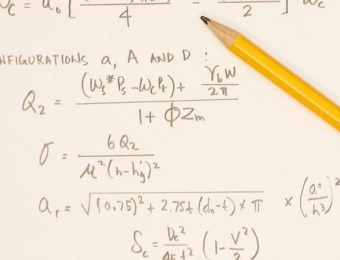 c = a₀ [ / 4 - / 2 ] w_c
NFIGURATIONS a, A AND D :
Q₂ = (W_s*P_s - W_cP_t) + γ_b W / 2π / 1 + ΦZ_m
σ = 6Q₂ / μ²(h-h'g)²
a_r = √(0.75)² + 2.75t (d₀-t) × π × (a⁰ / h³)²
S_c = D_c² / t² (1 - V² / 2)